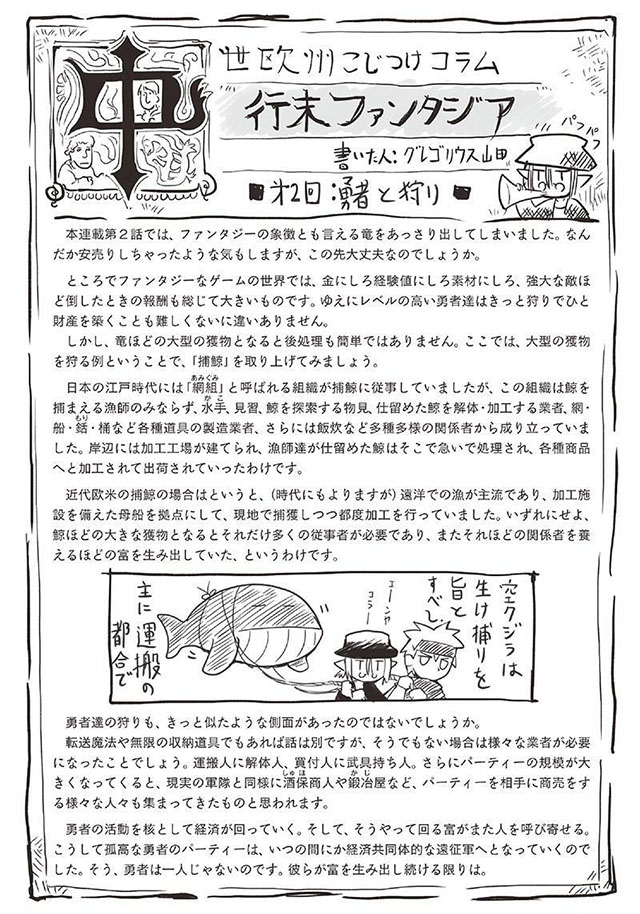 中世欧州こじつけコラム
行末ファンタジア
書いた人：グレゴリウス山田
パフ
パフ
■第2回：勇者と狩り■
本連載第２話では、ファンタジーの象徴とも言える竜をあっさり出してしまいました。なん
だか安売りしちゃったような気もしますが、この先大丈夫なのでしょうか。
ところでファンタジーなゲームの世界では、金にしろ経験値にしろ素材にしろ、強大な敵ほ
ど倒したときの報酬も総じて大きいものです。ゆえにレベルの高い勇者達はきっと狩りでひと
財産を築くことも難しくないに違いありません。
しかし、竜ほどの大型の獲物となると後処理も簡単ではありません。ここでは、大型の獲物
を狩る例ということで、「捕鯨」を取り上げてみましょう。
あみぐみ
日本の江戸時代には「網組」と呼ばれる組織が捕鯨に従事していましたが、この組織は鯨を
かこ
捕まえる漁師のみならず、水手、見習、鯨を探索する物見、仕留めた鯨を解体・加工する業者、網・
もり
船・銛・桶など各種道具の製造業者、さらには飯炊など多種多様の関係者から成り立っていま
した。岸辺には加工工場が建てられ、漁師達が仕留めた鯨はそこで急いで処理され、各種商品
へと加工されて出荷されていったわけです。
近代欧米の捕鯨の場合はというと、(時代にもよりますが) 遠洋での漁が主流であり、加工施
設を備えた母船を拠点にして、現地で捕獲しつつ都度加工を行っていました。いずれにせよ、
鯨ほどの大きな獲物となるとそれだけ多くの従事者が必要であり、またそれほどの関係者を養
えるほどの富を生み出していた、というわけです。
空クジラは
生け捕りを
旨と
すべし
エーンヤ
コラー
主に運搬の
都合で
勇者達の狩りも、きっと似たような側面があったのではないでしょうか。
転送魔法や無限の収納道具でもあれば話は別ですが、そうでもない場合は様々な業者が必要
になったことでしょう。運搬人に解体人、買付人に武具持ち人。さらにパーティーの規模が大
しゅほ
かじ
きくなってくると、現実の軍隊と同様に酒保商人や鍛冶屋など、パーティーを相手に商売をす
る様々な人々も集まってきたものと思われます。
勇者の活動を核として経済が回っていく。そして、そうやって回る富がまた人を呼び寄せる。
こうして孤高な勇者のパーティーは、いつの間にか経済共同体的な遠征軍へとなっていくので
した。そう、勇者は一人じゃないのです。彼らが富を生み出し続ける限りは。